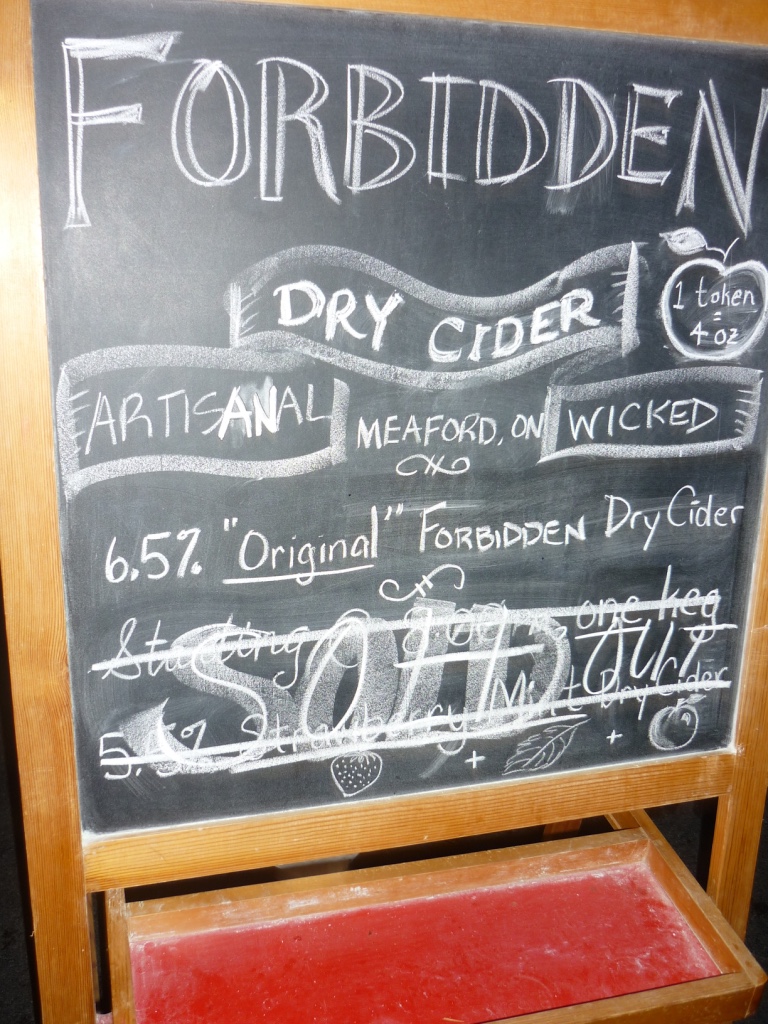 FORBIDDEN
DRY CIDER
1 token
=
4 oz
ARTISANAL
MEAFORD, ON
WICKED
6.5% "Original" FORBIDDEN Dry Cider
Starting @ one keg
SOLD OUT
5.5% Strawberry Mint Dry Cider
+ +